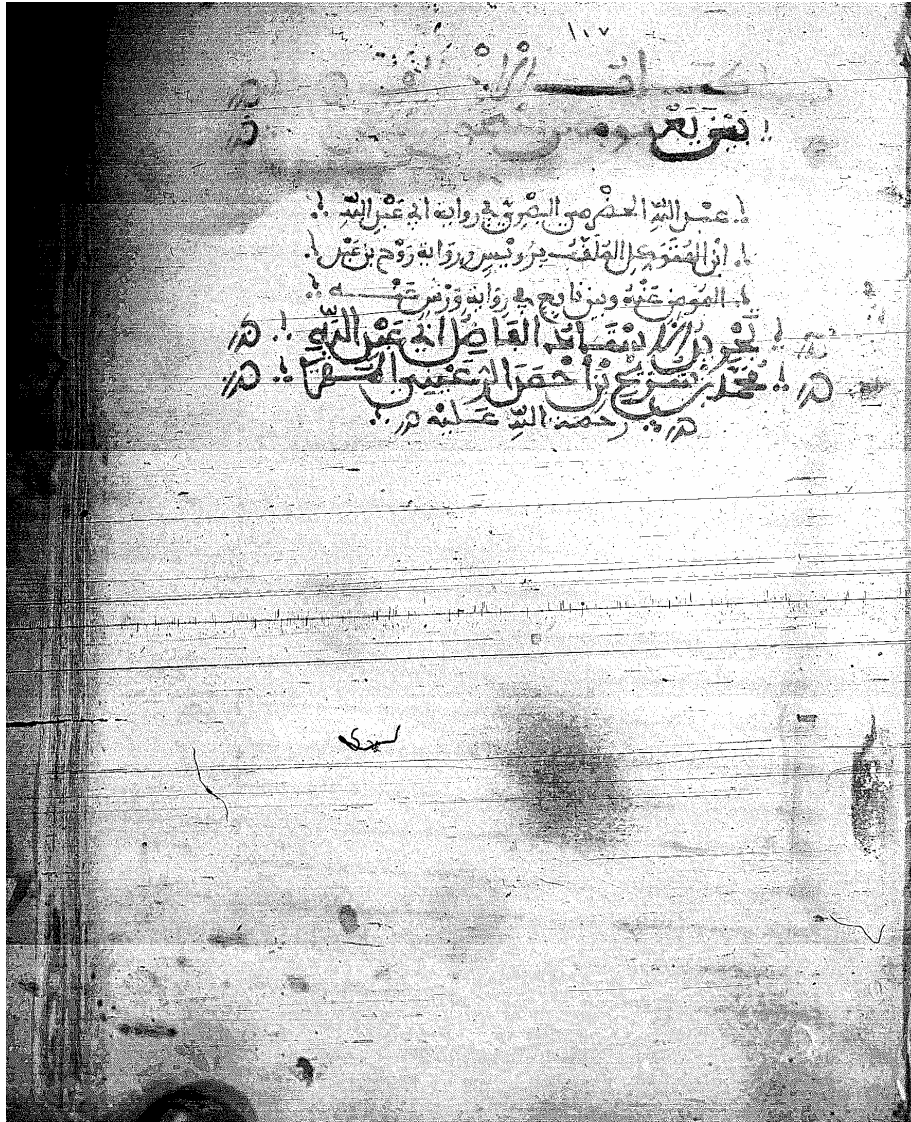 ١٠٧
بين يعقوب
عبد الله الحضرمي البصري في رواية ابي عبد الله
ابن المتوكل الملقب برويس ورواية روح بن عبد
المومن عنه وبين نافع في رواية ورش عنه
الفاضل ابي عبد الله
محمد بن شريح بن احمد الرعيني المقرئ
رحمة الله عليه